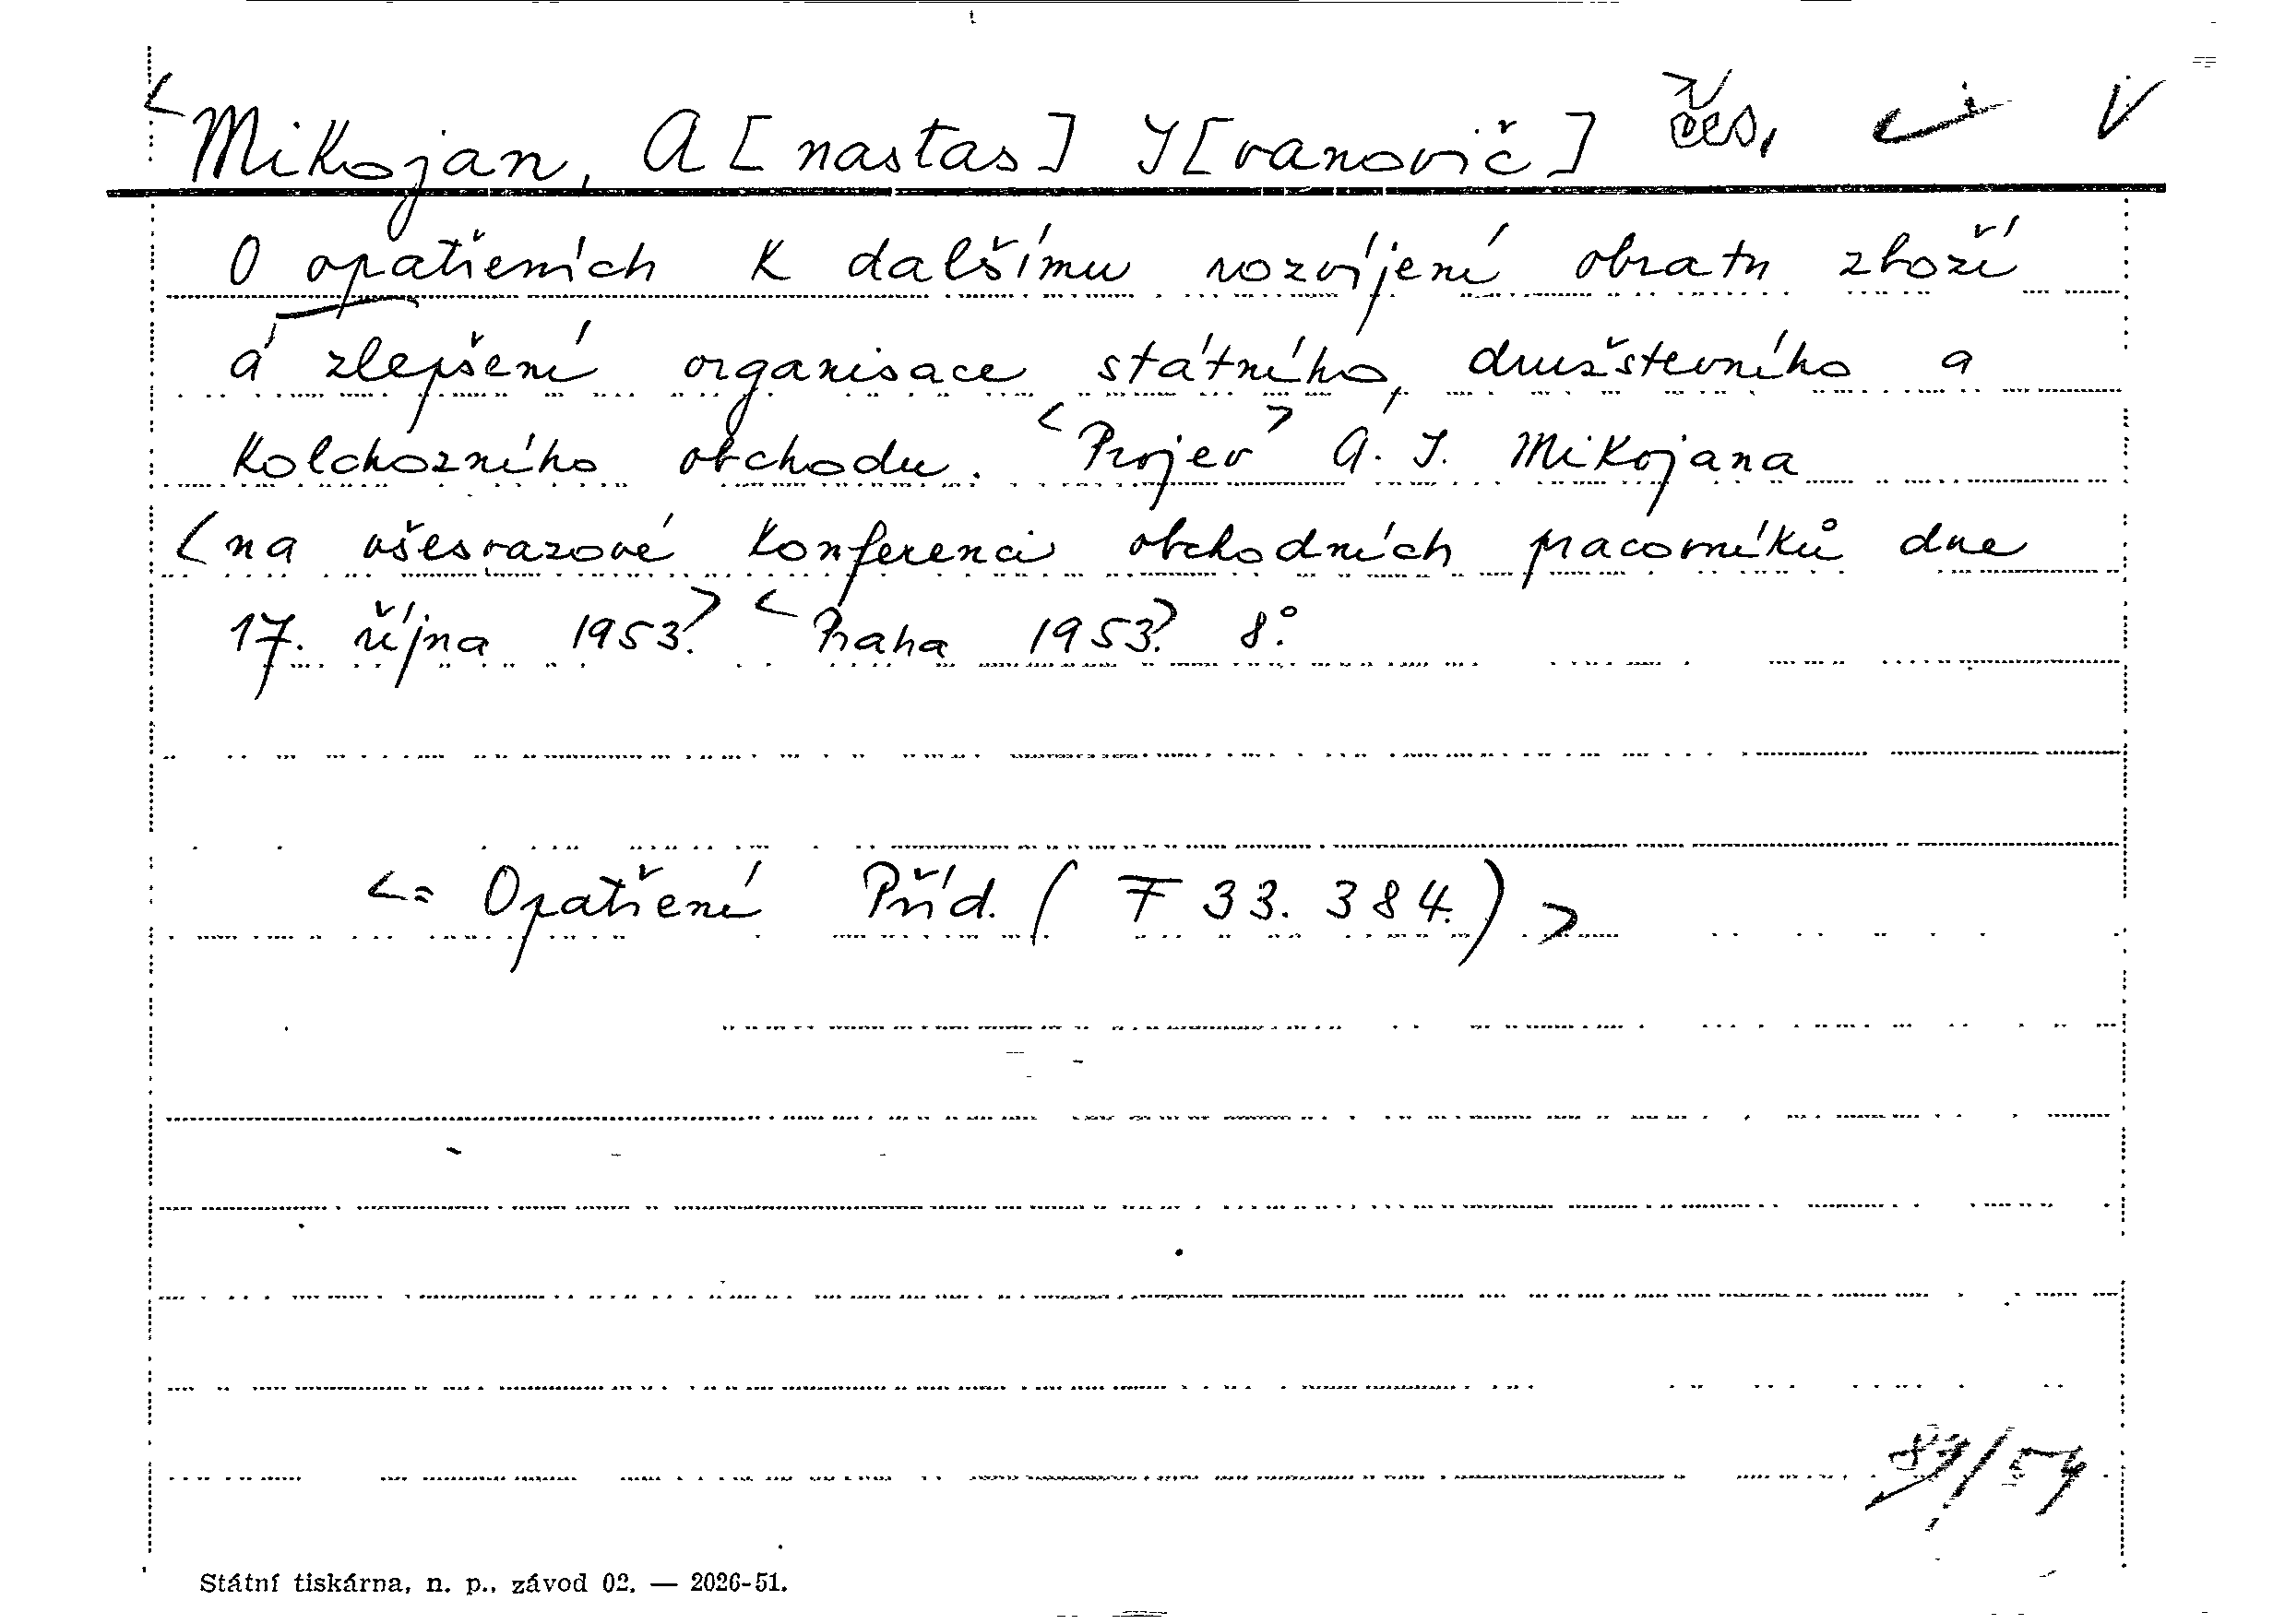 <Mikojan, A[nastas] I[vanovič] čes.
O opatřeních k dalšímu rozvíjení obratu zboží
a zlepšení organisace státního, družstevního a
kolchozního obchodu. <Projev> A. I. Mikojana
(na všesvazové konferenci obchodních pracovníků dne
17. října 1953.) <Praha 1953.> 8°.
<= Opatření Příd. (F 33.384.)>
89/54
Státní tiskárna, n. p., závod 02. — 2026-51.